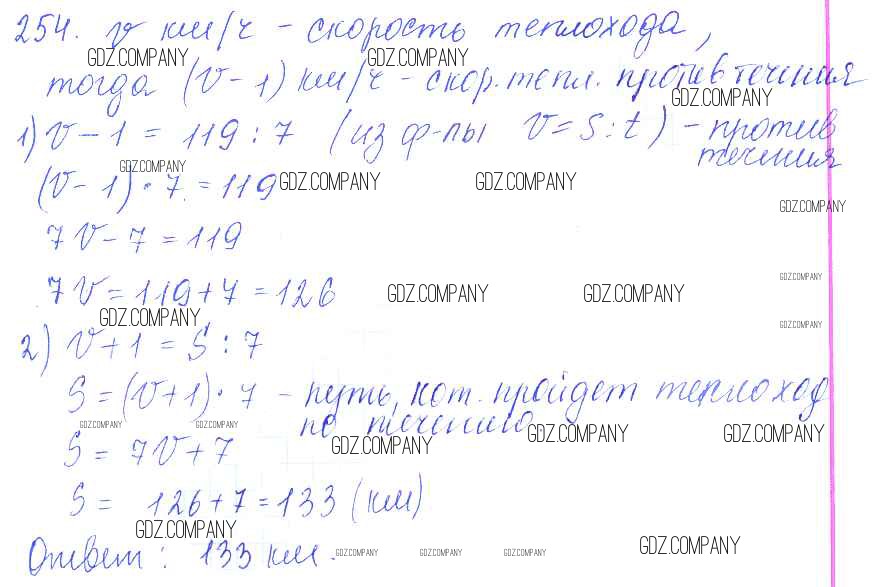 254. v км/ч - скорость теплохода,
GDZ.COMPANY GDZ.COMPANY
тогда (v-1) км/ч - скор. тепл. против течения
GDZ.COMPANY
1) v-1 = 119:7 (из ф-лы v=S:t) - против
течения
GDZ.COMPANY
(v-1)·7 = 119 GDZ.COMPANY GDZ.COMPANY
GDZ.COMPANY
7v-7=119
GDZ.COMPANY
7v=119+7=126 GDZ.COMPANY GDZ.COMPANY
GDZ.COMPANY GDZ.COMPANY
2) v+1=S:7
S=(v+1)·7 - путь, кот. пройдет теплоход
по течению.
GDZ.COMPANY GDZ.COMPANY GDZ.COMPANY GDZ.COMPANY
S= 7v+7 GDZ.COMPANY
S= 126+7=133 (км)
GDZ.COMPANY
Ответ: 133 км. GDZ.COMPANY GDZ.COMPANY GDZ.COMPANY GDZ.COMPANY